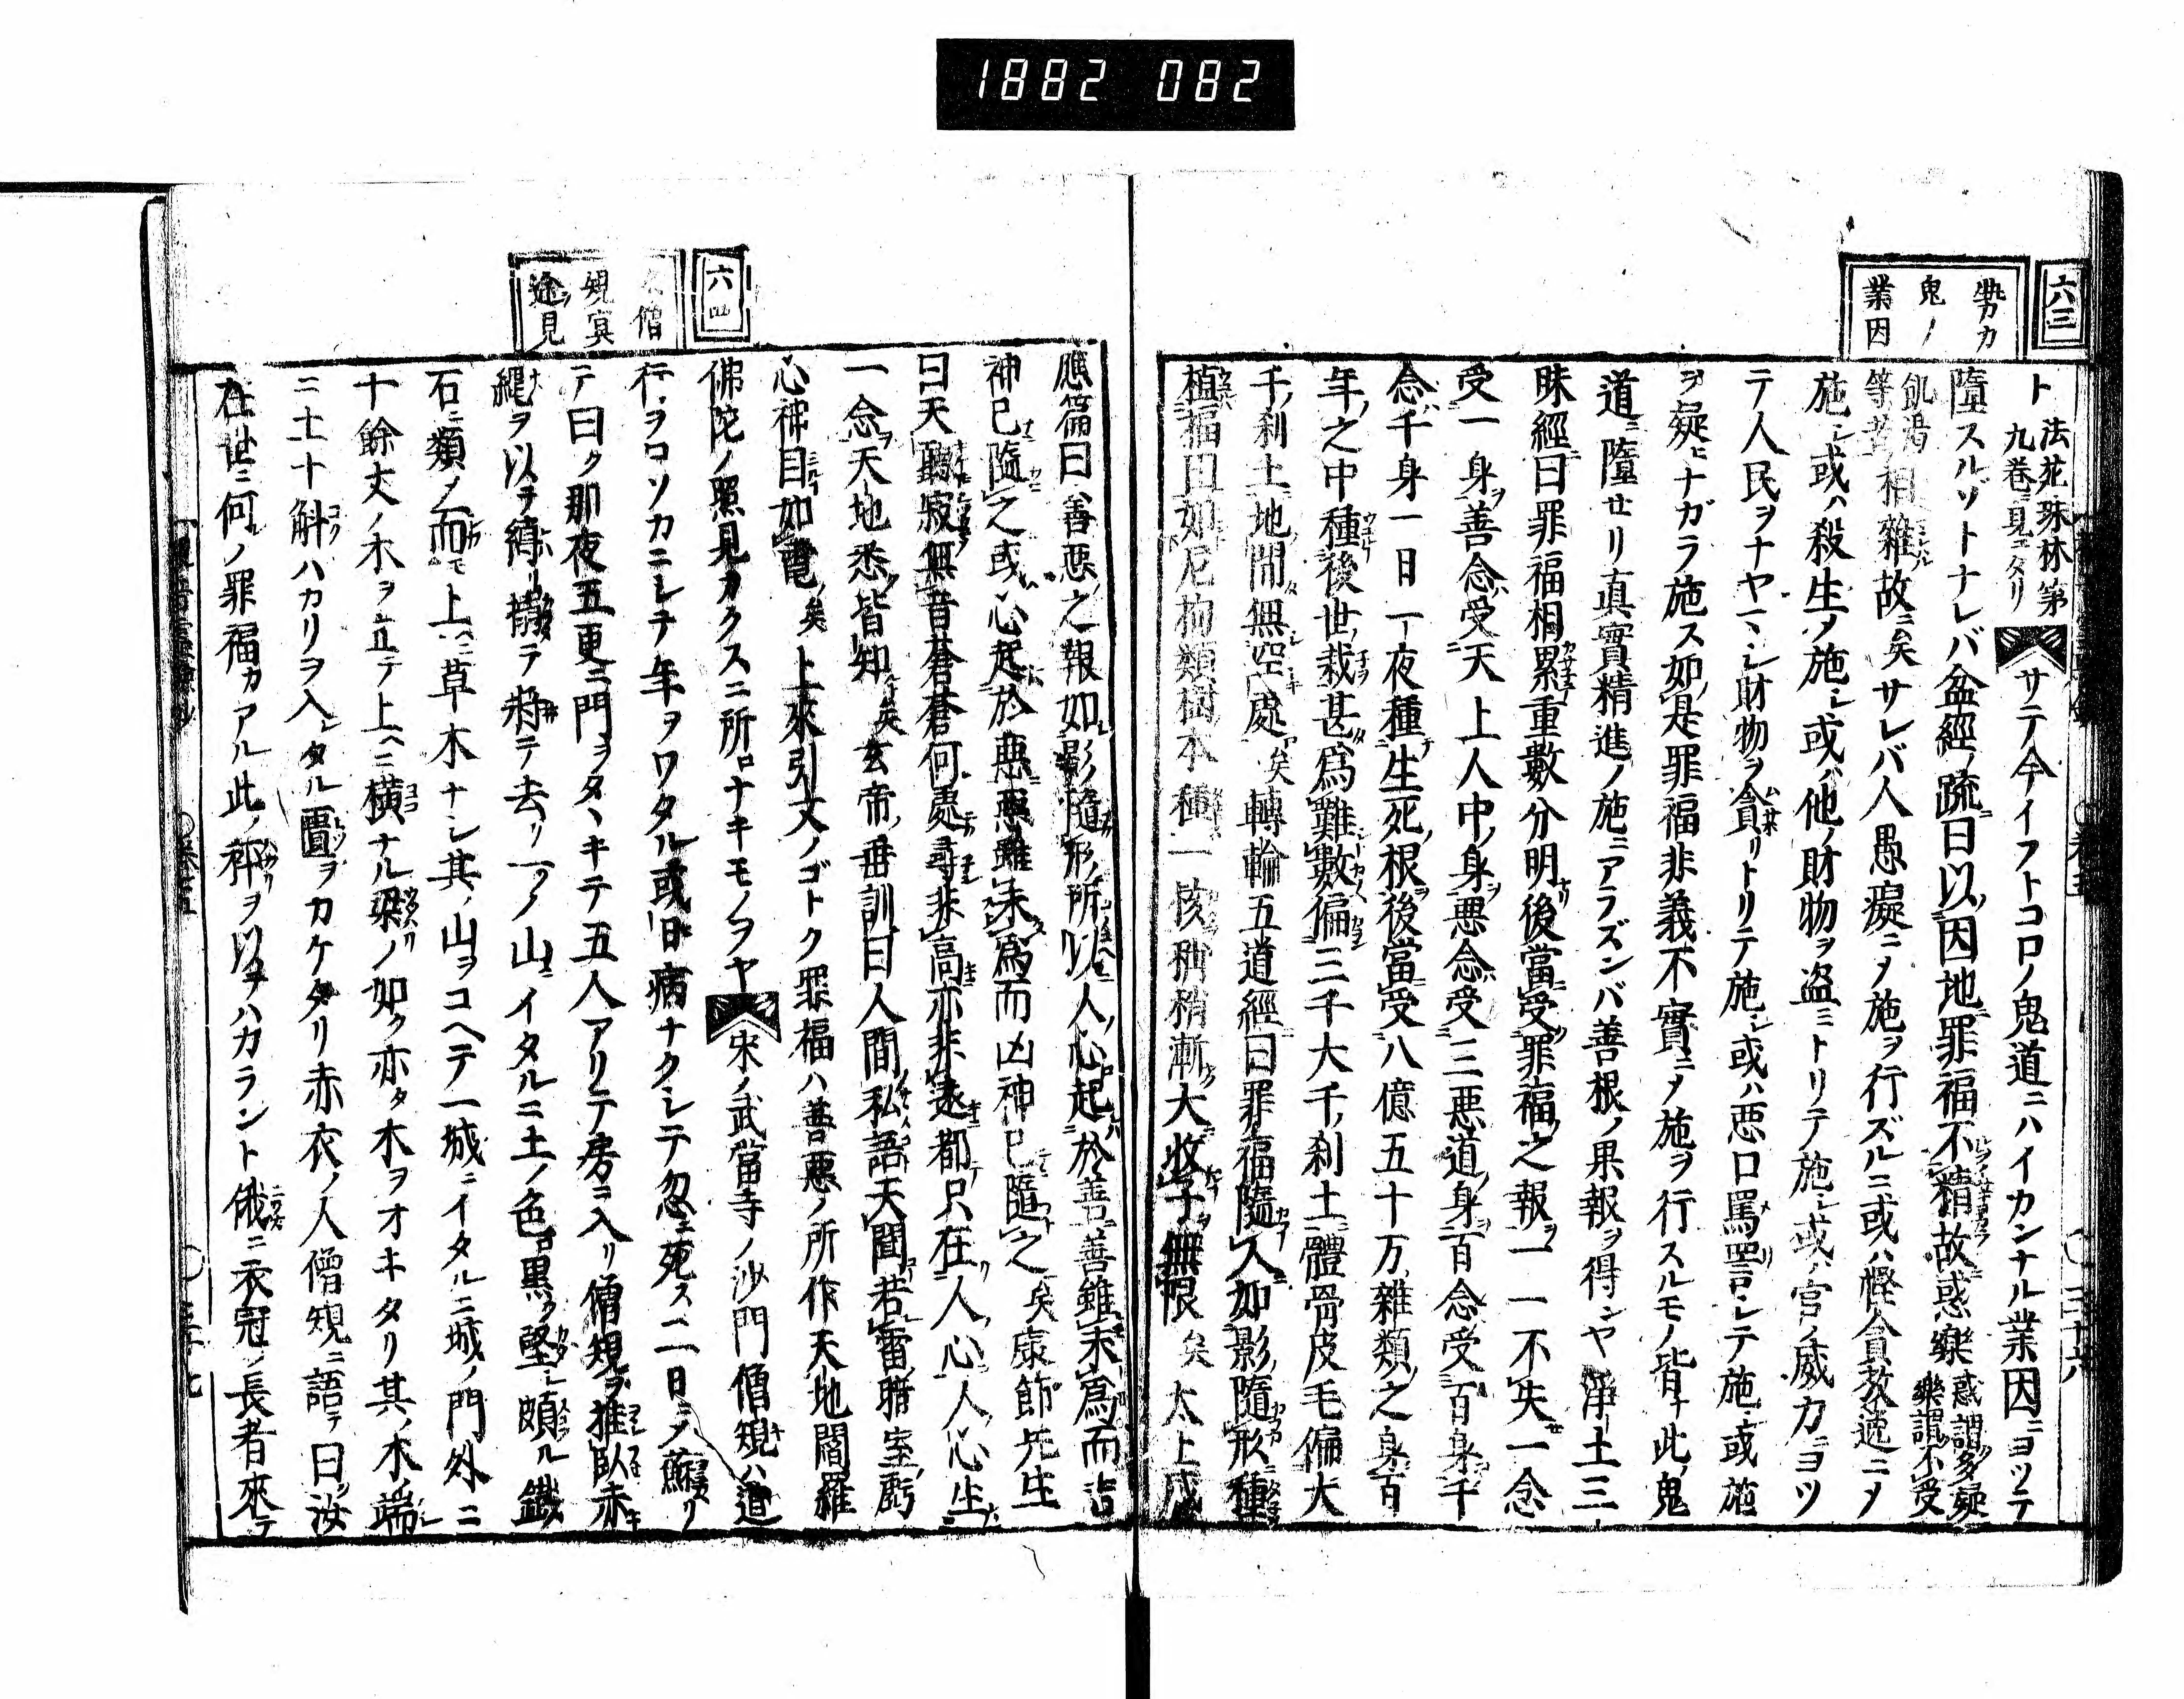 1882 082
六三
勢力
鬼ノ
業因
ト 法花珠林第九卷ニ見ヘタリ サテ今イフトコロノ鬼道ニハイカンナル業因ニヨツテ
墮スルソトナレバ盆經ノ疏ニ曰以因地罪福不精故惑樂 惑謂多疑樂謂不受
飢渴等苦 相雜故矣サレバ人愚癡ニメ施ヲ行ズルニ或ハ慳貪教逆ニメ
施シ或ハ殺生ノ施シ或ハ他ノ財物ヲ盜ミトリテ施シ或ハ官ノ威力ニヨツ
テ人民ヲナヤマシ財物ヲ貪リトリテ施シ或ハ惡口罵詈シテ施シ或施
ヲ疑ヒナガラ施ス如是罪福非義不實ニメ施ヲ行スルモノ皆ナ此ノ鬼
道ニ墮セリ眞實精進ノ施ニアラズンバ善根ノ果報ヲ得ンヤ淨土三
昧經ニ曰罪福相累重數分明後當受罪福之報一一不失一念
受一身善念受天上人中身惡念受三惡道身百念受百身千
念千身一日一夜種生死根後當受八億五十万雜類之身百
年之中種後世栽甚爲難數偏三千大千刹土體骨皮毛偏大
千刹土地間無空處矣轉輪五道經曰罪福隨人如影隨形種
植福田如尼拘類樹本種一核稍稍漸大收子無限矣太上感
應篇曰善惡之報如影隨形所以人心起於善善雖未爲而吉
神已隨之或心起於惡惡雖未爲而凶神已隨之矣康節先生
曰天聽寂無音蒼蒼何處尋非高亦非遠都只在人心人心生
一念天地悉皆知矣玄帝垂訓曰人間私語天聞若雷暗室虧
心神目如電矣上來引文ノゴトク罪福ハ善惡ノ所作天地閻羅
佛陀ノ照見カクスニ所ロナキモノヲヤ 宋ノ武當寺ノ沙門僧規ハ道
行ヲロソカニシテ年ヲワタル或日病ナクシテ忽ニ死ス二日ニメ蘇リ
テ曰ク那夜五更ニ門ヲタヽキテ五人アリテ房ニ入リ僧規ヲ推臥赤
繩ヲ以テ縛リ テ將テ去リ一ツノ山ニイタルニ土ノ色黒ク堅シ頗ル鐵
石ニ類ノ而モ上ニ草木ナシ其ノ山ヲコヘテ一城ニイタルニ城ノ門外ニ
十餘丈ノ木ヲ立テ上ヘニ横ナル梁ノ如ク亦タ木ヲオキタリ其ノ木端
ニ土十斛ハカリヲ入レタル匱ヲカケタリ赤衣ノ人僧規ニ語テ曰ク汝
在世ニ何ノ罪福カアル此ノ秤ヲ以テハカラント俄ニ衣冠ノ長者來テ
六四
僧
規冥
途見